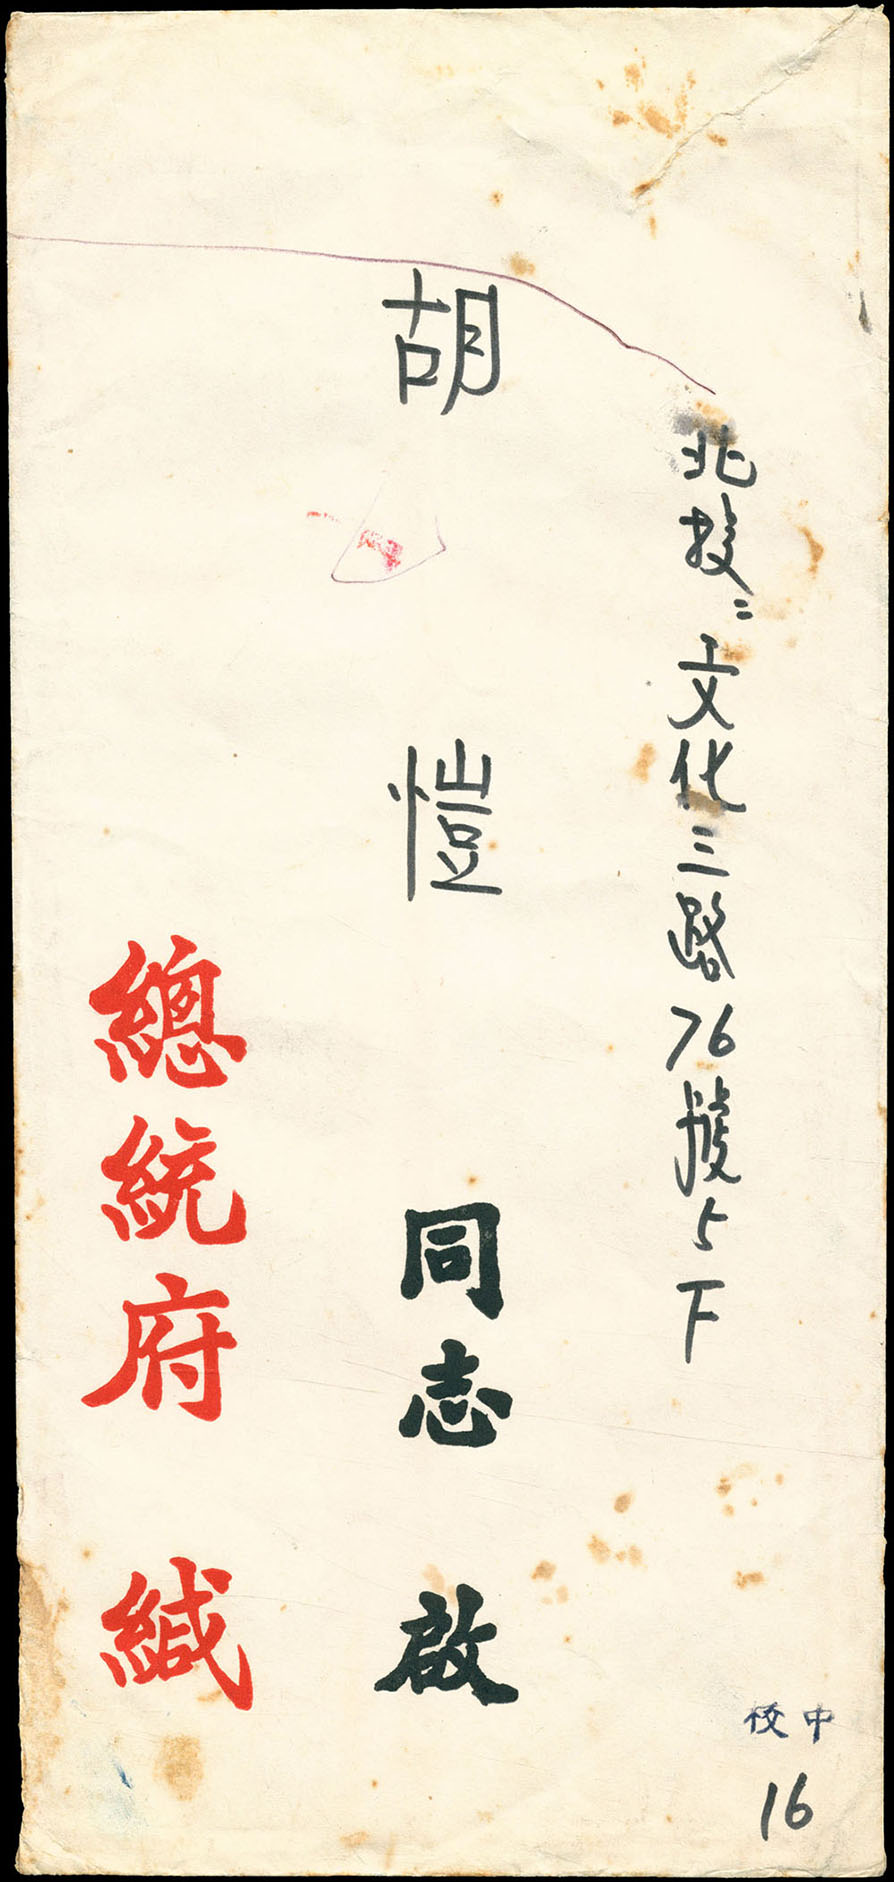 北投：文化三路76號5下
胡愷同志啟
總統府緘
中校
16